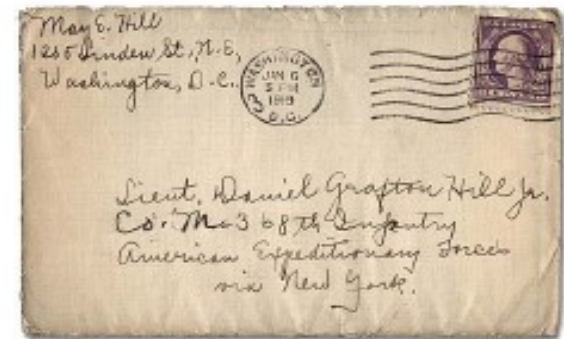 May E. Hill
1255 Linden St., N.E.,
Washington, D.C.
WASHINGTON
JAN 6
5 PM
1919
D.C.
Lieut. Daniel Grafton Hill Jr.
Co. M-368th Infantry
American Expeditionary Forces
via New York.